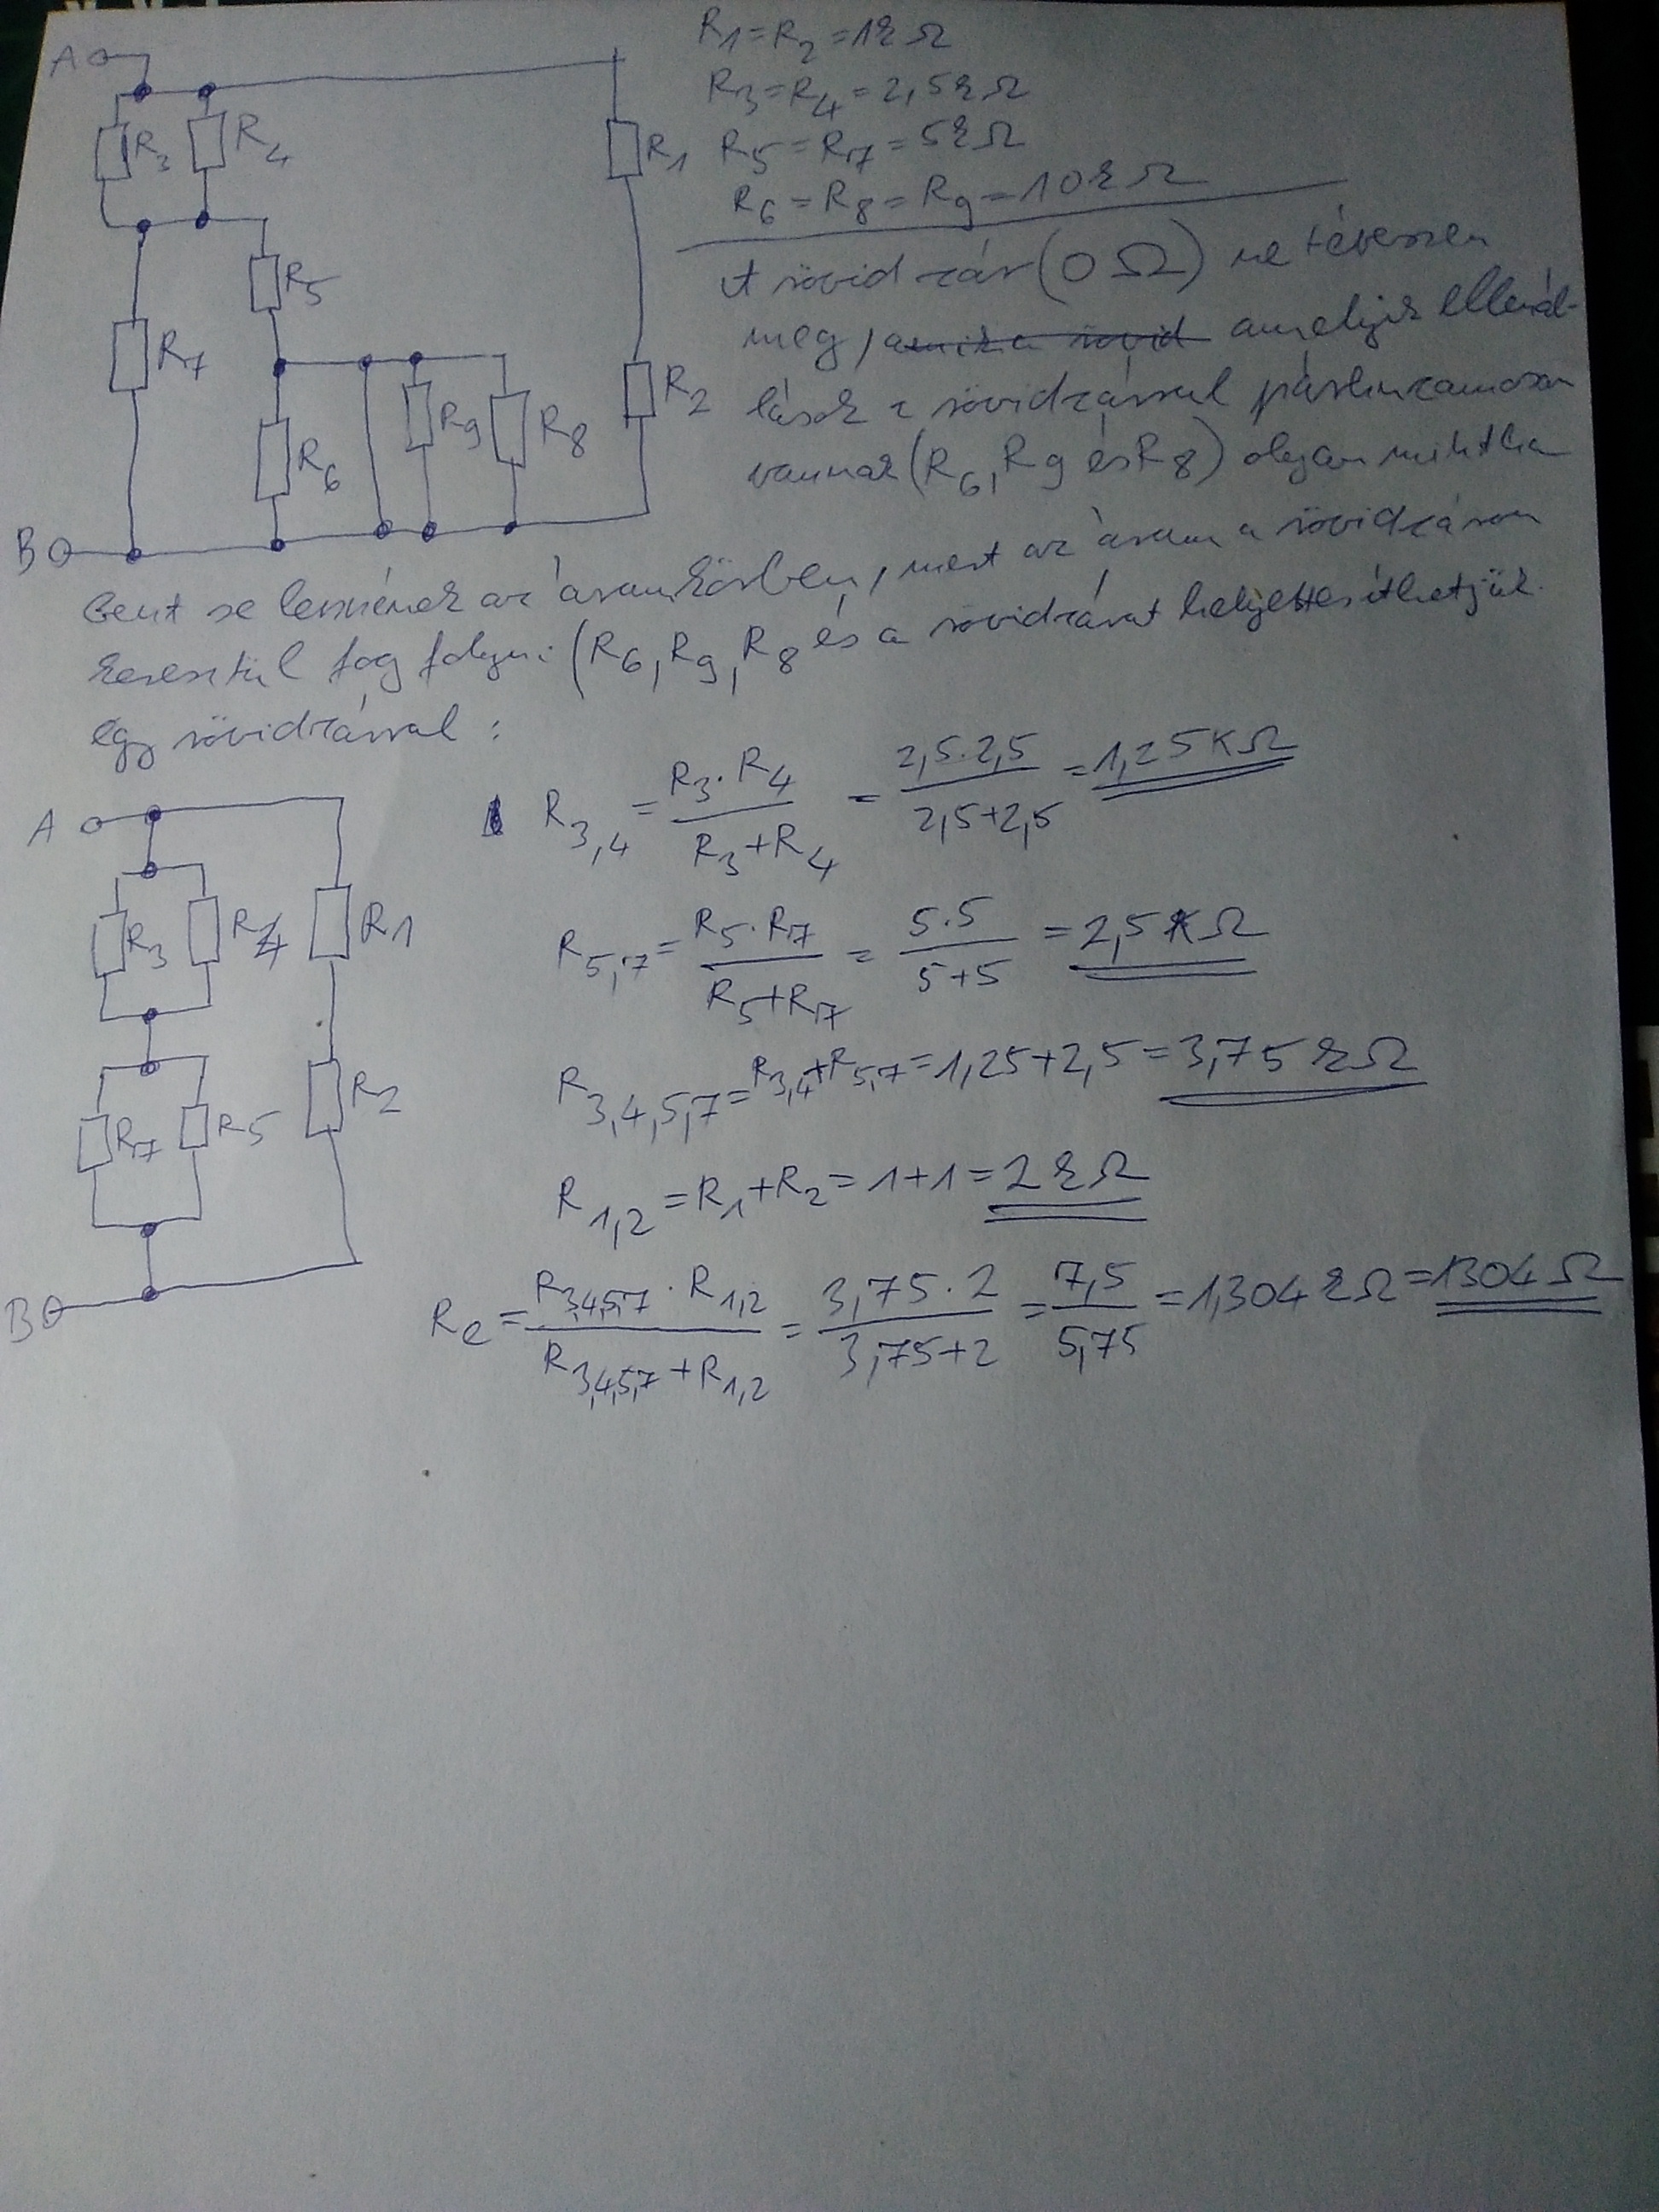 A
R1=R2=1kΩ
R3=R4=2,5kΩ
R3 R4 R1 R5=R7=5kΩ
R6=R8=R9=10kΩ
A rövidzár (0Ω) ne tévesszen
R5
meg, amelyik ellenál-
R7 R2
lások a rövidzárral párhuzamosan
R9 R8
vannak (R6, R9 és R8) olyan mintha
R6
B
bent se lennének az áramkörben, mert az áram a rövidzáron
keresztül fog folyni (R6, R9, R8 és a rövidzárat helyettesíthetjük
egy rövidzárral:
R3,4 = R3·R4 / R3+R4 = 2,5·2,5 / 2,5+2,5 = 1,25KΩ
A
R3 R4 R1
R5,7 = R5·R7 / R5+R7 = 5·5 / 5+5 = 2,5KΩ
R3,4,5,7 = R3,4+R5,7 = 1,25+2,5 = 3,75kΩ
R7 R5 R2
R1,2 = R1+R2 = 1+1 = 2kΩ
B
Re = R3,4,5,7·R1,2 / R3,4,5,7+R1,2 = 3,75·2 / 3,75+2 = 7,5 / 5,75 = 1,304kΩ = 1304Ω